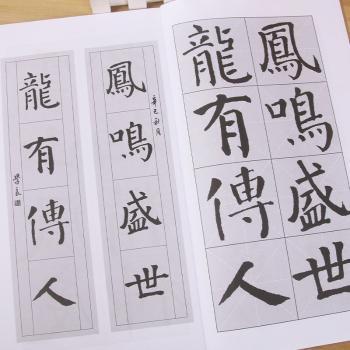 鳳鳴盛世
龍有傳人
辛巳秋月
鳳鳴盛世
龍有傳人